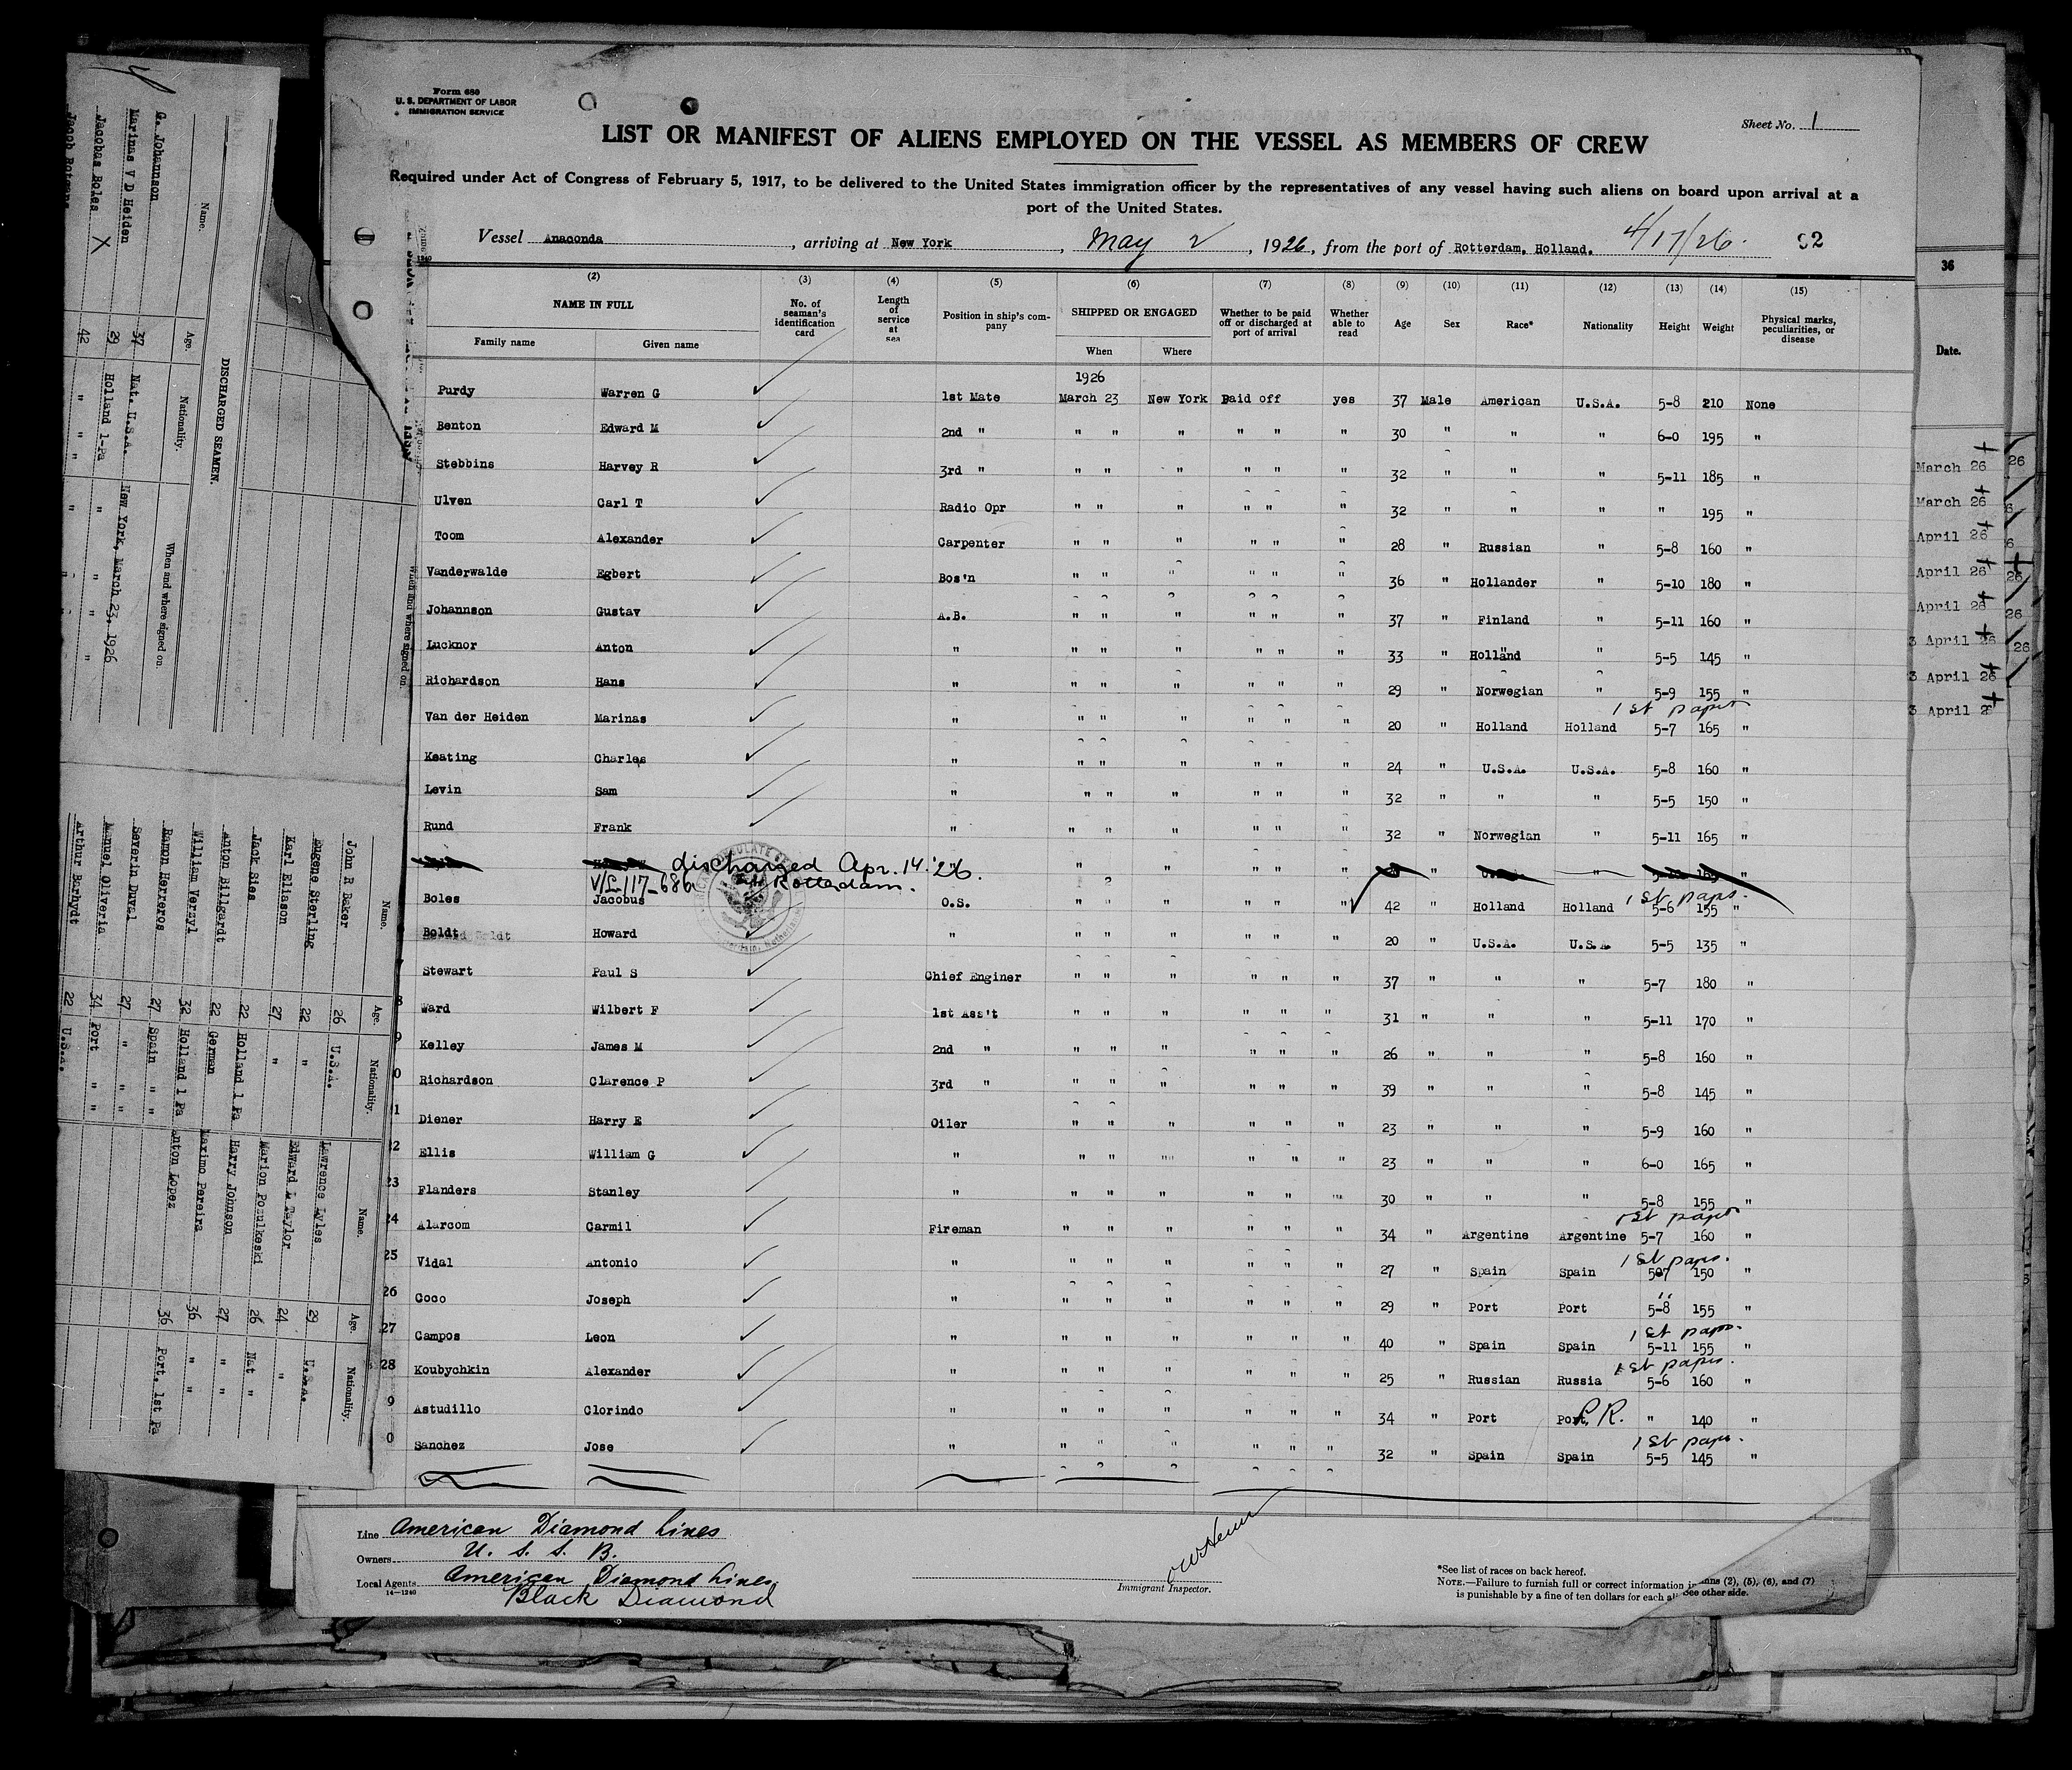 Form 680
U. S. DEPARTMENT OF LABOR
IMMIGRATION SERVICE
Sheet No. 1
LIST OR MANIFEST OF ALIENS EMPLOYED ON THE VESSEL AS MEMBERS OF CREW
Required under Act of Congress of February 5, 1917, to be delivered to the United States immigration officer by the representatives of any vessel having such aliens on board upon arrival at a
port of the United States.
Vessel Anaconda, arriving at New York, May 2, 1926, from the port of Rotterdam, Holland. 4/17/26. 82
(2) (3) (4) (5) (6) (7) (8) (9) (10) (11) (12) (13) (14) (15)
NAME IN FULL No. of seaman's identification card Length of service at sea Position in ship's company SHIPPED OR ENGAGED Whether to be paid off or discharged at port of arrival Whether able to read Age Sex Race* Nationality Height Weight Physical marks, peculiarities, or disease
Family name Given name When Where
1926
Purdy Warren G 1st Mate March 23 New York Paid off yes 37 Male American U.S.A. 5-8 210 None
Benton Edward M 2nd " " " " " " " 30 " " " 6-0 195 "
Stebbins Harvey R 3rd " " " " " " " 32 " " " 5-11 185 "
Ulven Carl T Radio Opr " " " " " " 32 " " " " 195 "
Toom Alexander Carpenter " " " " " " 28 " Russian " 5-8 160 "
Vanderwalde Egbert Bos'n " " " " " " 36 " Hollander " 5-10 180 "
Johannson Gustav A.B. " " " " " " 37 " Finland " 5-11 160 "
Lucknor Anton " " " " " " " 33 " Holland " 5-5 145 "
Richardson Hans " " " " " " " 29 " Norwegian " 5-9 155 "
1st papers
Van der Heiden Marinas " " " " " " " 20 " Holland Holland 5-7 165 "
Keating Charles " " " " " " " 24 " U.S.A. U.S.A. 5-8 160 "
Levin Sam " " " " " " " 32 " " " 5-5 150 "
Rund Frank " " " " " " " 32 " Norwegian " 5-11 165 "
discharged Apr. 14. '26.
V/L 117-686a at Rotterdam.
1st paps.
Boles Jacobus O.S. " " " " " " 42 " Holland Holland 5-6 155 "
Boldt Howard " " " " " " " 20 " U.S.A. U.S.A. 5-5 135 "
Stewart Paul S Chief Enginer " " " " " " 37 " " " 5-7 180 "
8 Ward Wilbert F 1st Ass't " " " " " " 31 " " " 5-11 170 "
9 Kelley James M 2nd " " " " " " " 26 " " " 5-8 160 "
0 Richardson Clarence P 3rd " " " " " " " 39 " " " 5-8 145 "
1 Diener Harry E Oiler " " " " " " 23 " " " 5-9 160 "
22 Ellis William G " " " " " " " 23 " " " 6-0 165 "
23 Flanders Stanley " " " " " " " 30 " " " 5-8 155 "
1st papers
24 Alarcom Carmil Fireman " " " " " " 34 " Argentine Argentine 5-7 160 "
1st paps.
25 Vidal Antonio " " " " " " " 27 " Spain Spain 5-7 150 "
26 Coco Joseph " " " " " " " 29 " Port Port 5-8 155 "
1st paps.
27 Campos Leon " " " " " " " 40 " Spain Spain 5-11 155 "
1st papers.
28 Koubychkin Alexander " " " " " " " 25 " Russian Russia 5-6 160 "
9 Astudillo Clorindo " " " " " " " 34 " Port Port P.R. " 140 "
1st paps.
0 Sanchez Jose " " " " " " " 32 " Spain Spain 5-5 145 "
Line American Diamond Lines
Owners U. S. S. B.
Local Agents American Diamond Lines.
Black Diamond
14—1240
Immigrant Inspector.
*See list of races on back hereof.
NOTE.—Failure to furnish full or correct information in
is punishable by a fine of ten dollars for each al
columns (2), (5), (6), and (7)
See other side.
DISCHARGED SEAMEN.
Name. Age. Nationality. When and where signed on.
G. Johannson 37 Nat. U.S.A. New York, March 23, 1926
Marinas V D Heiden 29 Holland 1-Pa " "
Jacobas Boles X 42 " " " "
Name. Age. Nationality. Name. Age. Nationality.
John R Baker 26 U.S.A. Lawrence Lyles 29 U.S.A.
Eugene Sterling 22 " Edward L Taylor 24 "
Karl Eliason 27 " Marion Pozulkeski 26 Nat "
Jack Sies 22 Holland 1 Pa Harry Johnson 27 " "
Anton Billgardt 22 German Maximo Pereira 36 " "
William Verzyl 32 Holland 1 Pa Anton Lopez 36 Port. 1st Pa
Ramon Hereros 27 Spain " "
Severin Duval 27 " " "
Manuel Oliveria 34 Port " "
Arthur Barhydt 22 U.S.A.
36
Date.
March 26
March 26
April 26
April 26
April 26
3 April 26
3 April 26
3 April 2